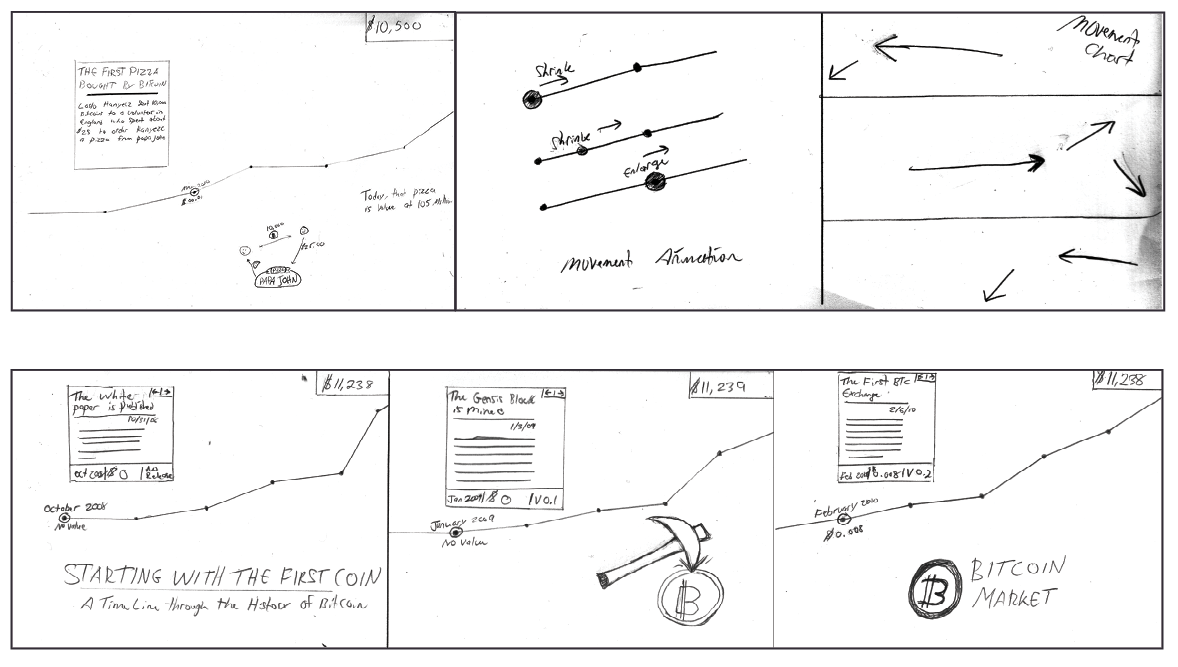 $10,500
THE FIRST PIZZA
BOUGHT By BITCOIN
Bitcoins to a volunteer in
England who spent about
$25 to order Hanyecz
a pizza from papa john
May 2010
$0.01
Today, that pizza
is value at 105 Million
10,000
$25.00
PAPA JOHN
Shrink
Shrinke
Enlarge
Movement Animation
Movement
Chart
$11,238
The White
paper is Published
10/31/08
Oct 2008/$0
October 2008
No value
STARTING WITH THE FIRST COIN
A TimeLine through the History of Bitcoin
$11,239
The Gensis Block
is Mined
1/3/09
Jan 2009/$0 /V0.1
January 2009
No Value
B
$11,238
The First BTC
Exchange
2/6/10
Feb 2010/$0.008/V0.2
February 2010
$0.008
B BITCOIN
MARKET